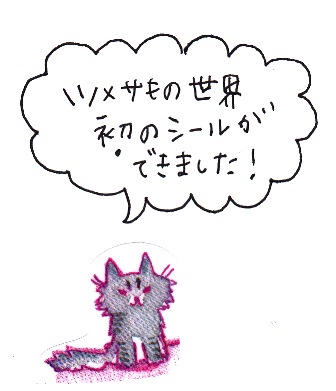 ツメサもの世界
初のシールが
できました!